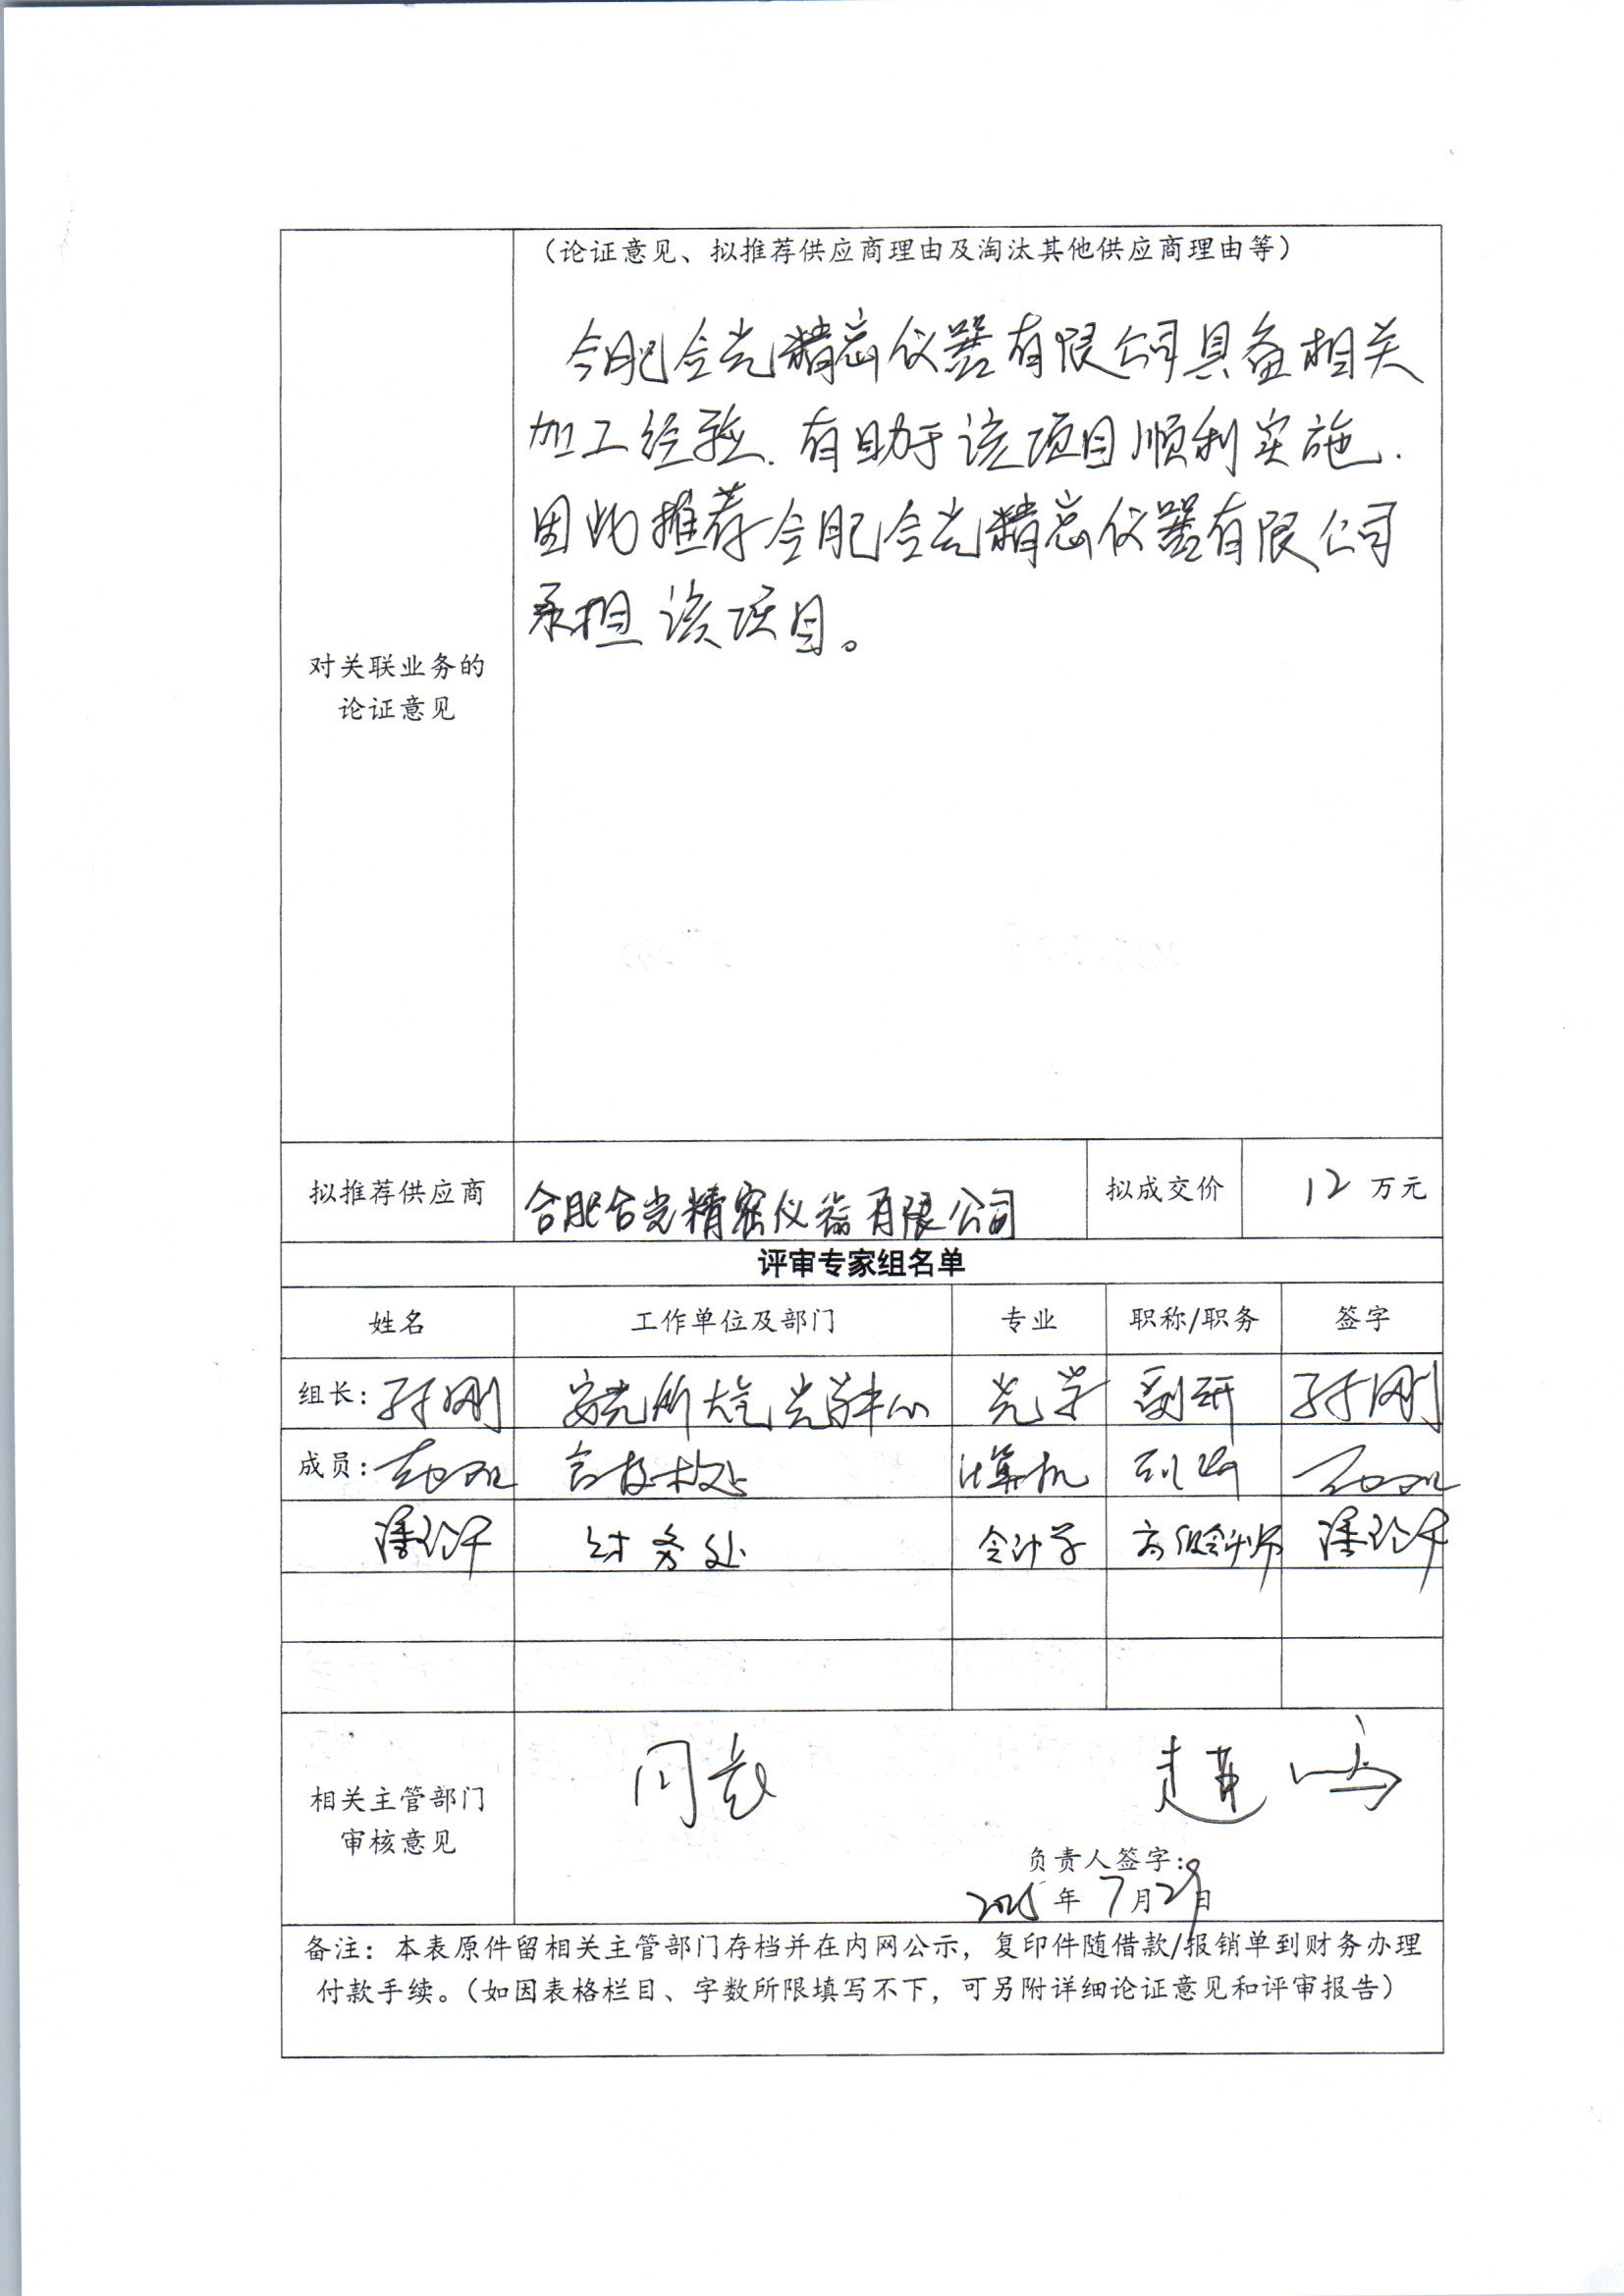 （论证意见、拟推荐供应商理由及淘汰其他供应商理由等）
合肥合光精密仪器有限公司具备相关
加工经验.有助于该项目顺利实施.
因此推荐合肥合光精密仪器有限公司
承担该项目。
对关联业务的
论证意见
拟推荐供应商 合肥合光精密仪器有限公司 拟成交价 12 万元
评审专家组名单
姓名 工作单位及部门 专业 职称/职务 签字
组长：孙刚 安光所大气光学中心 光学 副研 孙刚
成员： 计算机
潘 财务处 会计学 高级会计师 潘
同意
相关主管部门
审核意见
负责人签字：
2025年7月29日
备注：本表原件留相关主管部门存档并在内网公示，复印件随借款/报销单到财务办理
付款手续。（如因表格栏目、字数所限填写不下，可另附详细论证意见和评审报告）